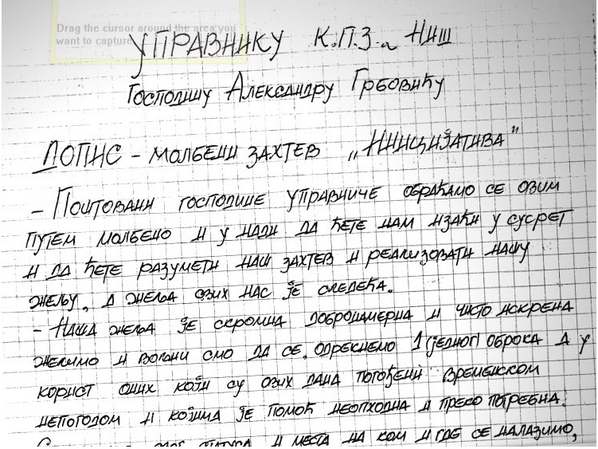 Drag the cursor around the area you
want to capture
УПРАВНИКУ К.П.З-а НИШ
ГОСПОДИНУ АЛЕКСАНДРУ ГРБОВИЋУ
ДОПИС - МОЛБЕНИ ЗАХТЕВ „ИНИЦИЈАТИВА"
- ПОШТОВАНИ ГОСПОДИНЕ УПРАВНИЧЕ ОБРАЋАМО СЕ ОВИМ
ПУТЕМ МОЛБЕНО И У НАДИ ДА ЋЕТЕ НАМ ИЗАЋИ У СУСРЕТ
И ДА ЋЕТЕ РАЗУМЕТИ НАШ ЗАХТЕВ И РЕАЛИЗОВАТИ НАШУ
ЖЕЉУ, А ЖЕЉА СВИХ НАС ЈЕ СЛЕДЕЋА.
- НАША ЖЕЉА ЈЕ СКРОМНА ДОБРОНАМЕРНА И ЧИСТО ИСКРЕНА
ЖЕЛИМО И ВОЉНИ СМО ДА СЕ ОДРЕКНЕМО 1 (ЈЕДНОГ) ОБРОКА А У
КОРИСТ ОНИХ КОЈИ СУ ОВИХ ДАНА ПОГОЂЕНИ ВРЕМЕНСКОМ
НЕПОГОДОМ И КОЈИМА ЈЕ ПОМОЋ НЕОПХОДНА И ПРЕКО ПОТРЕБНА.
И МЕСТА НА КОМ И ГДЕ СЕ НАЛАЗИМО,